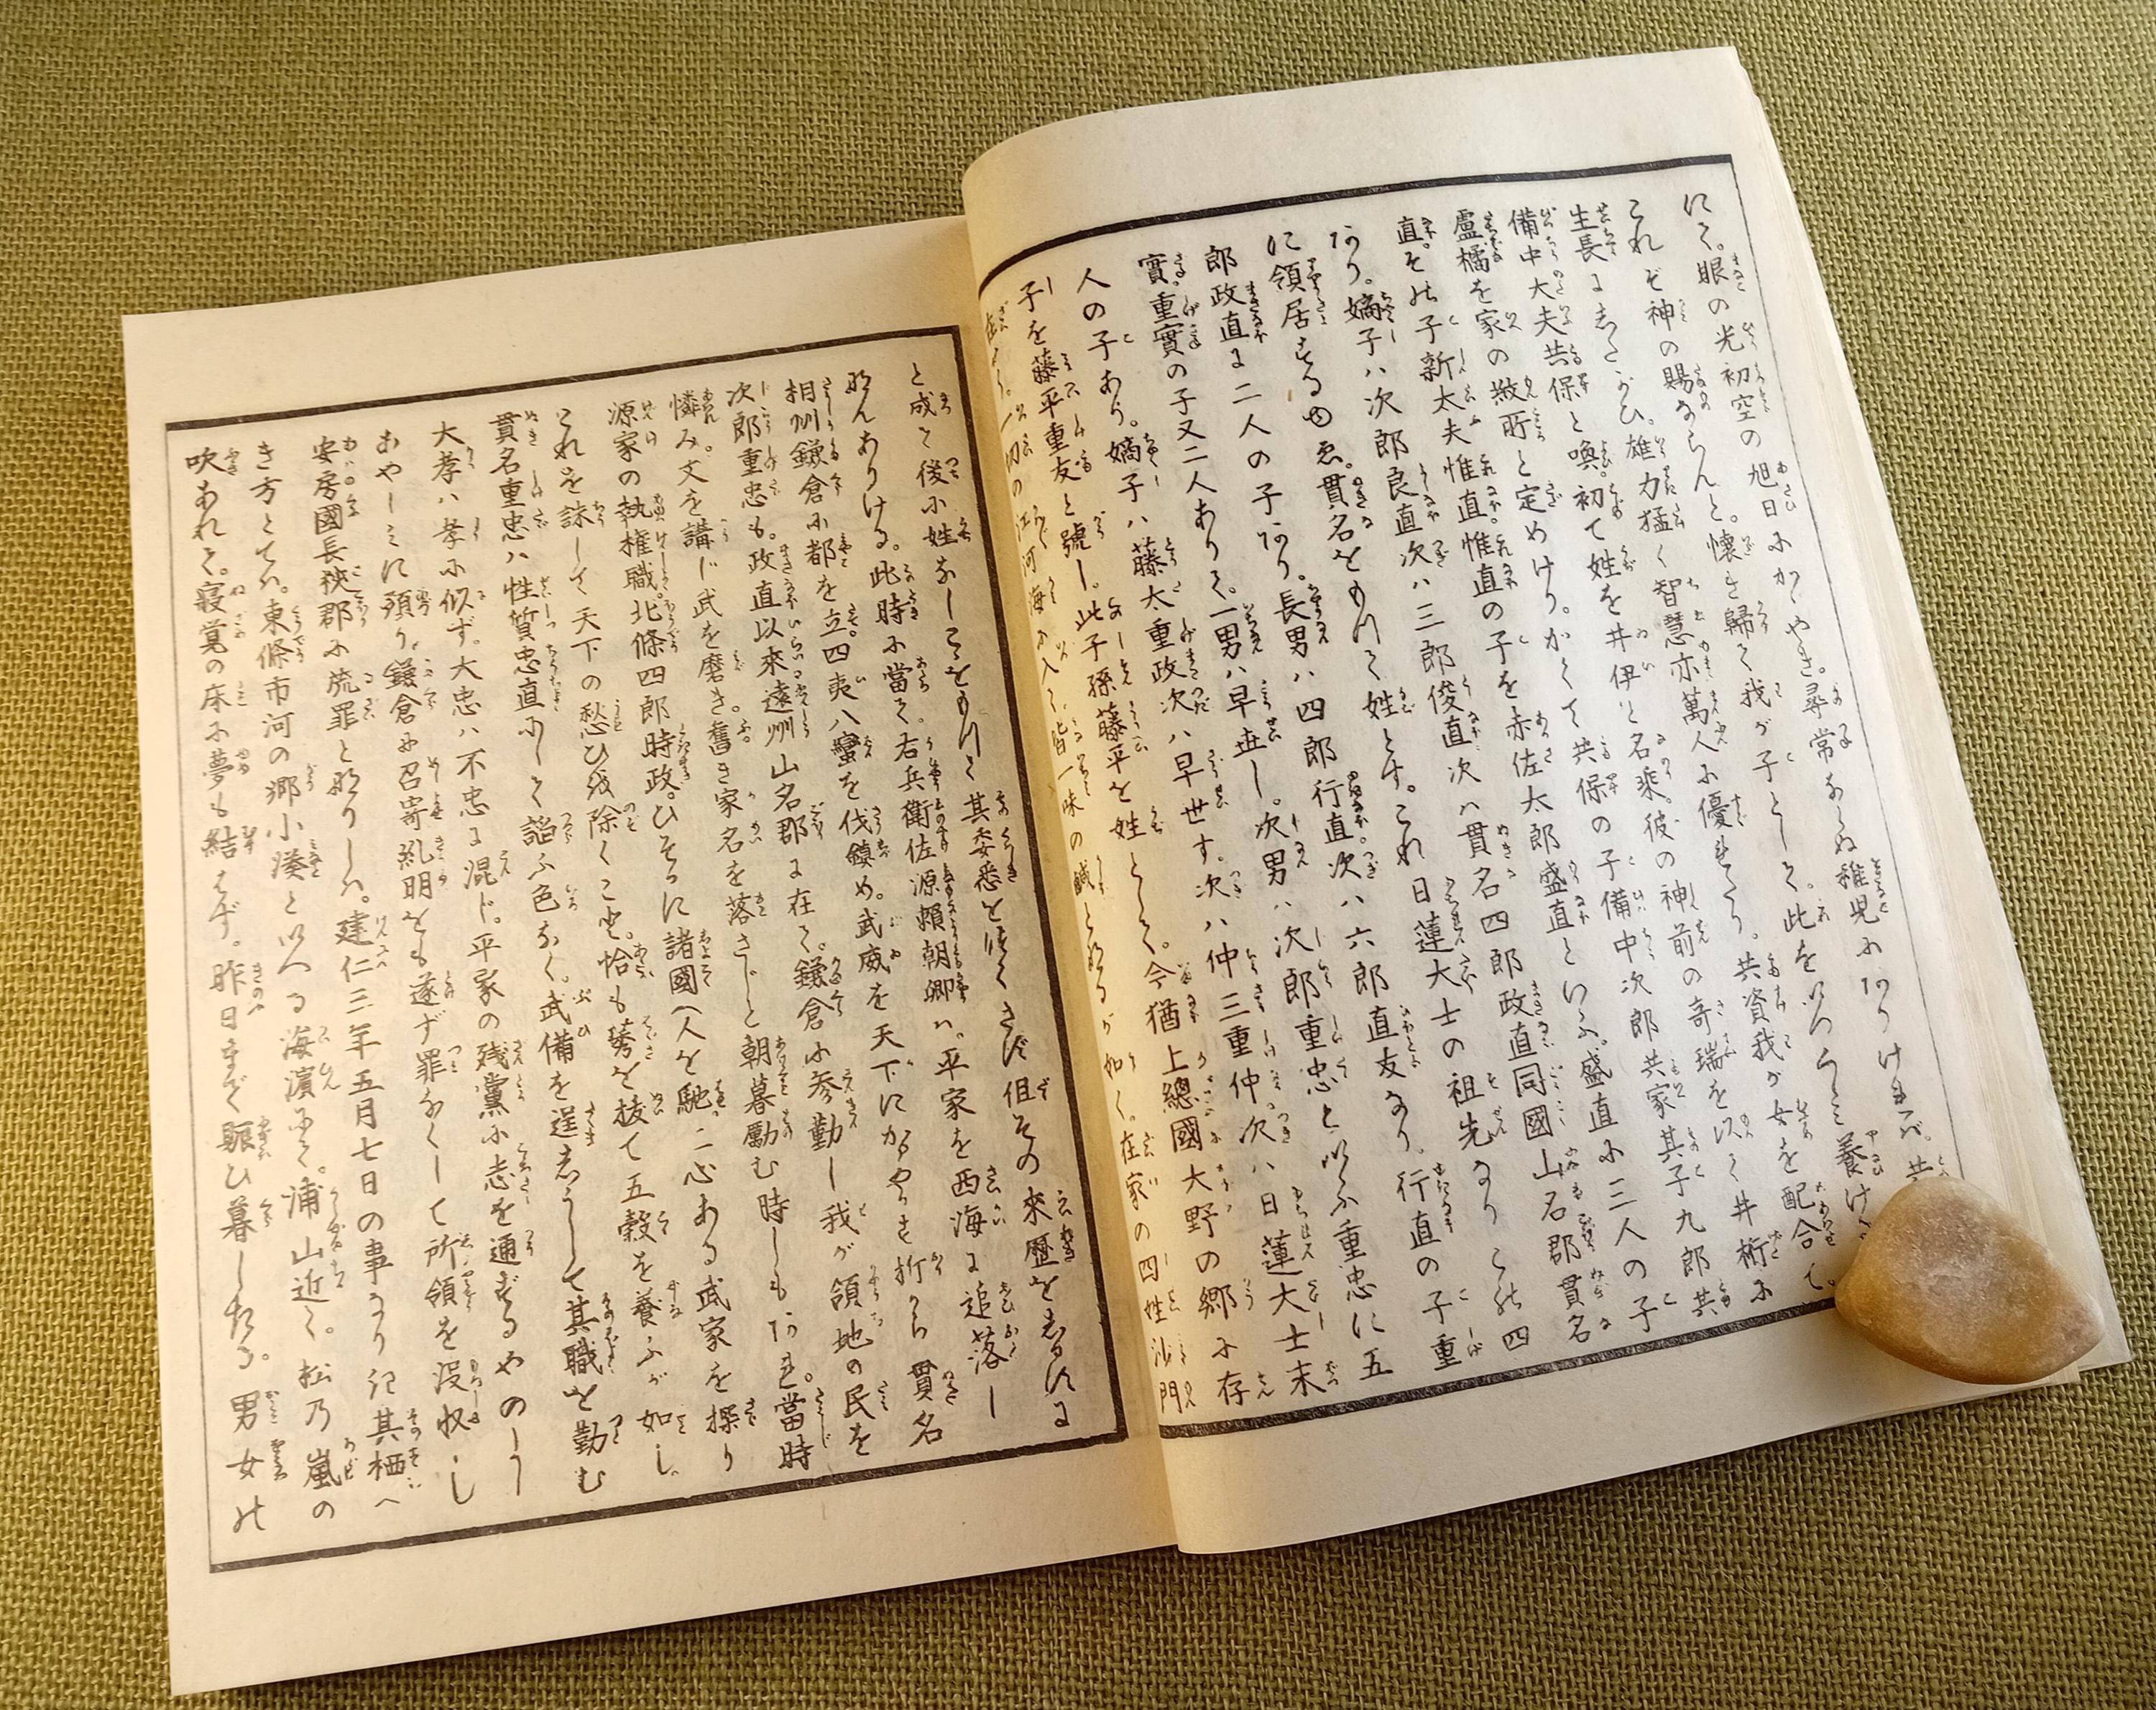 にて。眼の光初空の旭日にかゞやき。尋常ならぬ稚児にてありければ。共
これぞ神の賜ならんと。懐き歸て我が子として。此を以てうみ養け
生長にしたがひ。雄力猛く智慧亦萬人に優れたり。共資我が女を配合て。
備中大夫共保と喚。初て姓を井伊と名乘。彼の神前の奇瑞を以て井桁に
盧橘を家の徽所と定めけり。かくて共保の子備中次郎共家其子九郎共
直。その子新太夫惟直。惟直の子を赤佐太郎盛直といふ盛直に三人の子
あり。嫡子ハ次郎良直次ハ三郎俊直次ハ貫名四郎政直同國山名郡貫名
に領居するゆゑ。貫名をもつて姓とす。これ日蓮大士の祖先なりこの四
郎政直に二人の子あり。長男ハ四郎行直。次ハ六郎直友なり。行直の子重
實。重實の子又二人ありて。一男ハ早世し。次男ハ次郎重忠と以ふ重忠に五
人の子あり。嫡子ハ藤太重政次ハ早世す。次ハ仲三重仲。次ハ日蓮大士末
子を藤平重友と號し。此子孫藤平を姓として。今猶上總國大野の郷に存
在せり。一切の江河海に入て。皆一味の鹹となるが如く。在家の四姓沙門
と成て後に姓なしことをもつて其委悉を除くされば但その來歴をしるすに
なんありける。此時に當て。右兵衛佐源頼朝卿ハ。平家を西海に追落し
相州鎌倉に都を立。四夷八蠻を伐鎮め。武威を天下にかゞやかせ折から貫名
次郎重忠も。政直以來遠州山名郡に在て。鎌倉に参勤し我が領地の民を
憐み。文を講じ武を磨き。舊き家名を落さじと朝暮勵む時しもあれ。當時
源家の執権職。北條四郎時政。ひそかに諸國へ人を馳。二心ある武家を探り
これを誅して天下の愁ひを除くこと。恰も莠を抜て五穀を養ふが如し。
貫名重忠ハ性質忠直にして諂ふ色なく。武備を逞しうして其職を勤む
大孝ハ孝に似ず。大忠ハ不忠に混じ。平家の残黨に志を通ずるやのうた
あやしみに預り。鎌倉に召寄糺明をも遂ず罪なくして所領を没収し
安房國長狹郡に流罪となりしハ。建仁三年五月七日の事なり記其栖へ
き方とてハ。東條市河の郷小湊と以へる海濱にて。浦山近く。松乃嵐の
吹あれて。寝覚の床に夢も結ばず。昨日まで賑ひ暮したる。男女の